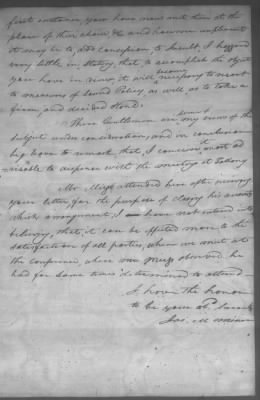 first instance, your have now met them at the
place of their choice, & and however unpleasant
it may be to, add conception, to Insult, I hazzard
very little in, stating, that to accomplish the object
you have in view, it will become necessary to resort
to measures of sound Policy, as well as to take a
firm, and decided stand.
These Gentlemen are some of my views of the
subject under consideration, and in conclusion
beg leave to remark, that, I conceive it most ad
visable to dispense with the meeting at
Mr attended here after receiving
your letter, for the purpose of closing his account
which arrangement, I have not entered into
believing, that it can be effected more to the
satisfaction of all parties, when we meet at
the conference, where one observed, he
had for some time determined to attend
I have the honor
to be your ob.
Jas.